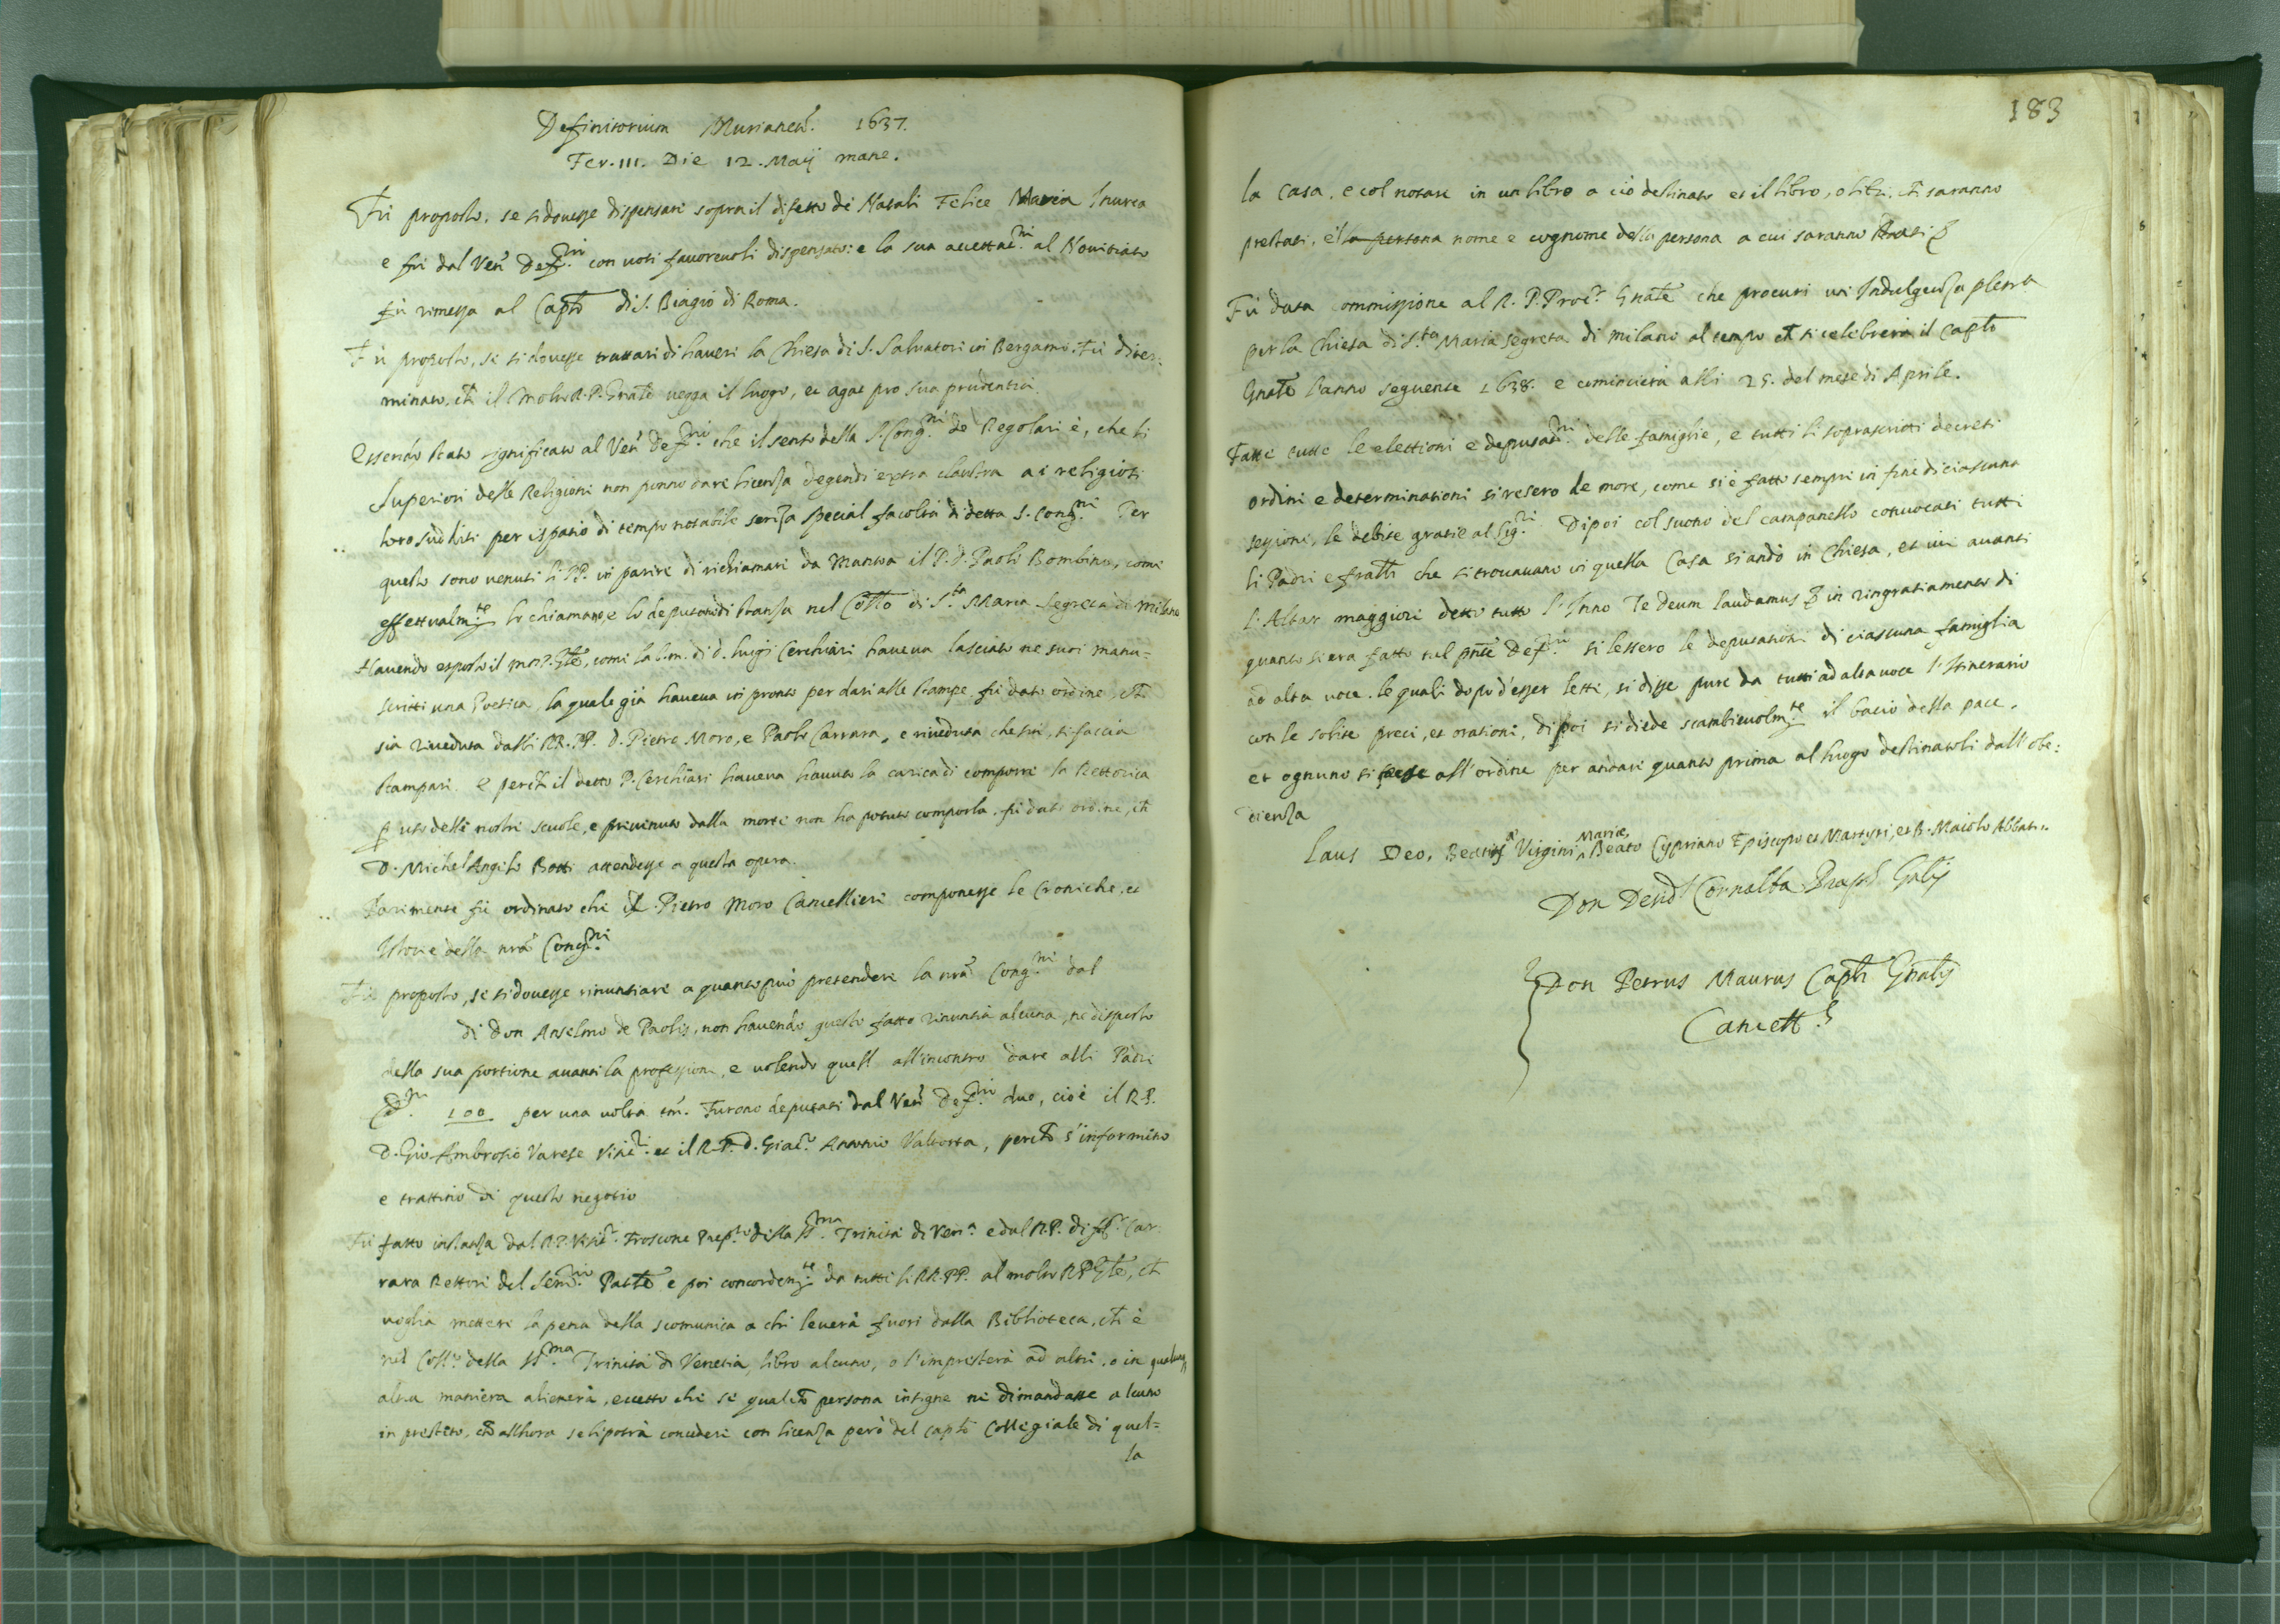 Definitorium Murianen. 1637.
Fer. III. Die 12. Maij mane.
Fù proposto, se si douesse dispensare sopra il difetto de Natali Felice Maria Inurea
e fù dal Ven. Def.ᵐⁱ con uoti fauoreuoli dispensato: e la sua accettat.ⁿⁱ al Nouitiato
fù rimessa al Capto di S. Biagio di Roma.
Fù proposto, se si douesse trattare di hauere la Chiesa di S. Saluatore in Bergamo. Fù diter-
minato, ch il Molto R. P. Gnale uegga il luogo, et agat pro sua prudentia.
Essendo stato significato al Ven. Def.ⁿⁱ che il senso della S. Cong.ⁿⁱ de Regolari è, che li
Superiori delle Religioni non ponno dare licenza degendi extra claustra ai religiosi
loro sudditi per ispatio di tempo notabile senza special facoltà di detta S. Cong.ⁿⁱ Per
questo sono uenuti li PP. in parere di richiamare da Mantoa il P. D. Paolo Bombino, come
effettualm.ᵗᵉ lo chiamano e lo deputano di stanza nel Collo di S.ᵗᵃ Maria Segreta di Milano
Hauendo esposto il mo. P. Gle, come la b. m. di d. Luigi Cerchiari haueua lasciato ne suoi manu-
scritti una Poetica, la quale già haueua in pronto per dare alle stampe, fù dato ordine, ch
sia riueduta dalli RR. PP. D. Pietro Moro, e Paolo Carrara, e riueduta che sia, si faccia
stampare. E perch il detto P. Cerchiari haueua hauuto la carica di comporre la Rettorica
p uso delle nostre scuole, e preuenuto dalla morte non ha potuto comporla, fù dato ordine, ch
D. Michel Angelo Botti attendesse a questa opera.
Parimente fù ordinato che il P. Pietro Moro Cancelliere componesse le Croniche, et
Istorie della nra Cong.ⁿⁱ
Fù proposto, se si douesse rinuntiare a quanto può pretendere la nra Cong.ⁿⁱ dal
di Don Anselmo de Paolis, non hauendo questo fatto rinuntia alcuna, ne disposto
della sua portione auanti la professione, e uolendo quell all'incontro dare alli Padri
100 per una uolta tm. Furono deputati dal Ven. Def.ⁿⁱ due, cioè il R. P.
D. Gio. Ambrosio Varese Visit. et il R. P. D. Giac. Antonio Valtorta, perchè s'informino
e trattino di questo negotio
Fù fatto instanza dal R. P. Visit. Froscone Prep.ᵗᵒ della SS.ᵐᵃ Trinità di Ven.ᵃ e dal R. P. Car-
rara Rettore del Sem.ʳⁱᵒ Patle e poi concordem.ᵗᵉ da tutti li RR. PP. al molto R. P. Gle, ch
uoglia mettere la pena della scomunica a chi leuerà fuori dalla Biblioteca, ch è
nel Coll.º della SS.ᵐᵃ Trinità di Venetia, libro alcuno, o l'impresterà ad altri, o in qualunq
altra maniera alienerà, eccetto che se qualche persona insigne ne dimandasse alcuno
in prestito, ch allhora se li potrà concedere con licenza però del capto Collegiale di quel-
la
183
la Casa, e col notare in un libro a ciò destinato et il libro, o libri, ch saranno
prestati, e'l la persona nome e cognome della persona a cui saranno
Fù data commissione al R. P. Proc. Gnale che procuri un' Indulgenza plena
per la Chiesa di S.ᵗᵃ Maria Segreta di Milano al tempo ch si celebrerà il Capto
Gnale l'anno seguente 1638. e comincierà alli 25. del mese di Aprile.
Fatte tutte le elettioni e deputat.ⁿⁱ delle famiglie, e tutti li soprascritti decreti
ordini e determinationi si resero de more, come si è fatto sempre in fine di ciascuna
sessione, le debite gratie al Sig.ʳⁱ Dipoi col suono del campanello conuocati tutti
li Padri e fratlli che si trouauano in quella Casa si andò in Chiesa, et iui auanti
l'Altar maggiore detto tutto l'Inno Te deum laudamus & in ringratiamento di
quanto si era fatto nel pnte Def.ⁿⁱ si lessero le deputationi di ciascuna famiglia
ad alta uoce. le quali dopo d'esser lette, si disse pure da tutti ad alta uoce l'Itinerario
con le solite preci, et orationi, di poi si diede scambieuolm.ᵗᵉ il bacio della pace,
et ognuno si pose all'ordine per andare quanto prima al luogo destinatoli dall'obe-
dienza
Laus Deo, Beatæ Virgini Mariæ, Beato Cypriano Episcopo et Martyri, et B. Maiolo Abbati.
Don Desid. Cornalba Præp. Gnlis
Don Petrus Maurus Capli Gnalis
Cancell.s